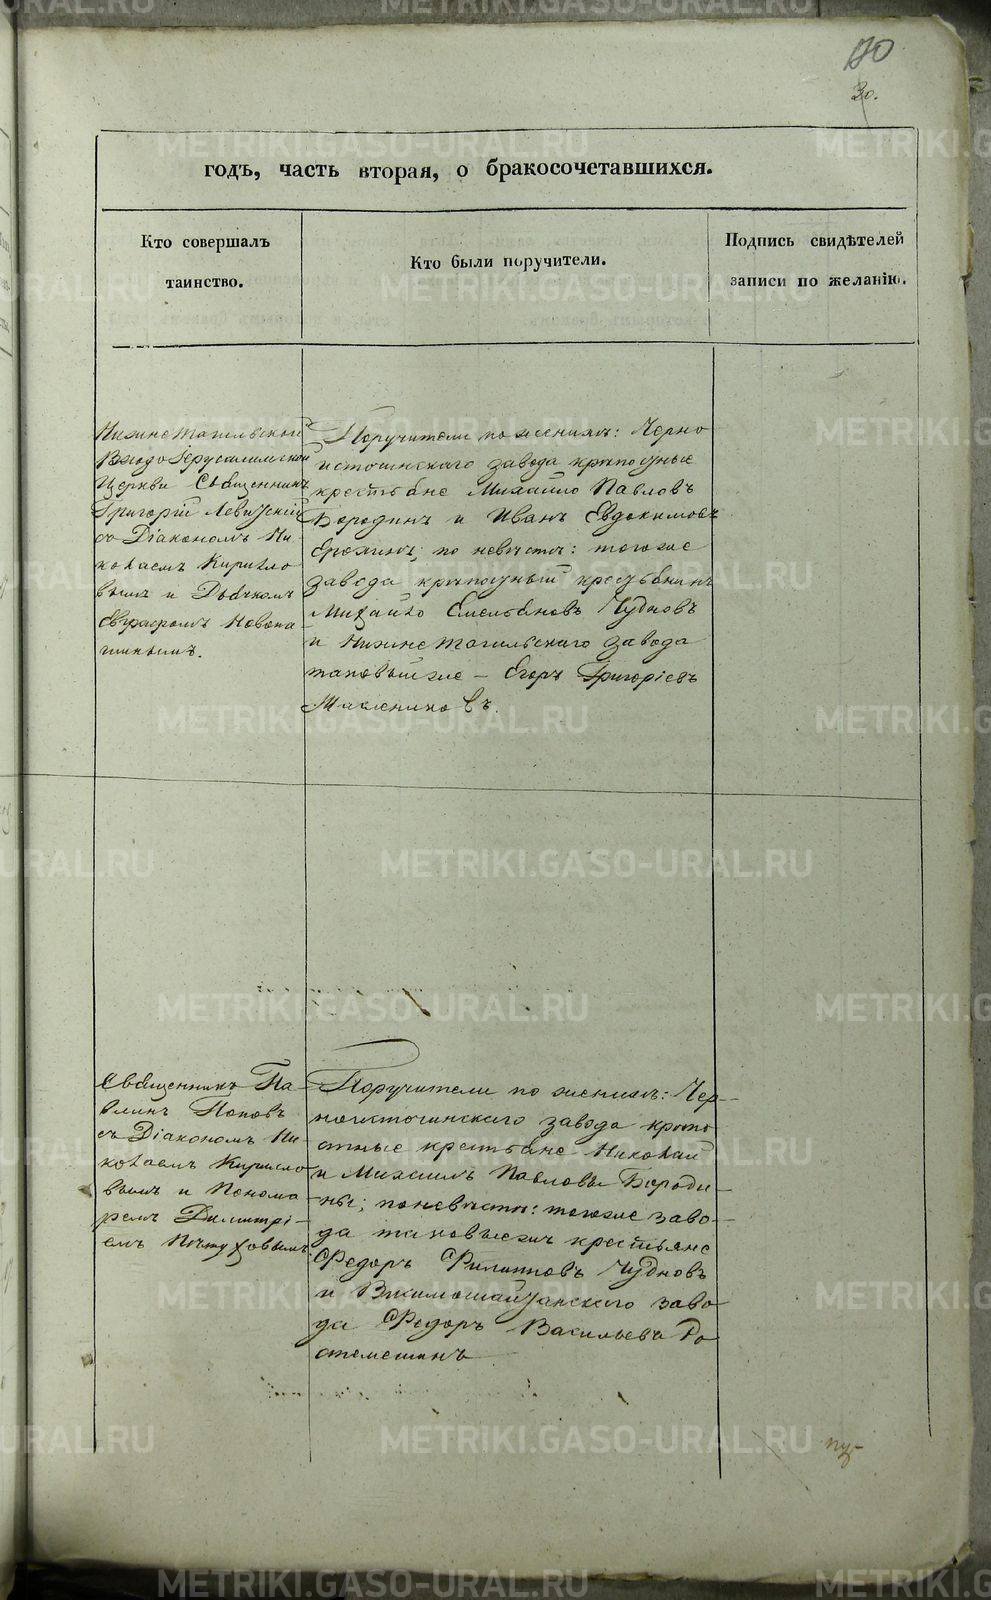 30.
годъ, часть вторая, о бракосочетавшихся.
Кто совершалъ
таинство.
Кто были поручители.
Подпись свидѣтелей
записи по желанію.
Нижнетагильской
Входо Іерусалимской
Церкви Священникъ
Григорій Левитскій
съ Діакономъ Ни
колаемъ Кирилло
вымъ и Дьячкомъ
Евграфомъ Новопа
шинымъ.
Поручители по женихѣ: Черно
источинскаго завода крѣпостные
крестьяне Михайло Павловъ
Бородинъ и Иванъ Евдокимовъ
Ерохинъ; по невѣстѣ: тогоже
завода крѣпостный крестьянинъ
Михайло Емельяновъ Чудновъ
и Нижнетагильскаго завода
таковыйже — Егоръ Григоріевъ
Масленниковъ.
Священникъ Па-
влинъ Поповъ
съ Діакономъ Ни-
колаемъ Кирилло
вымъ и Понома
ремъ Димитрі-
емъ Пѣтуховымъ
Поручители по женихѣ: Чер-
ноисточинскаго завода крѣпо
стные крестьяне Николай
и Михаилъ Павловы Бороди-
ны; по невѣстѣ: тогоже заво-
да таковыеже крестьяне
Федоръ Филиповъ Чудновъ
и Висимошайтанскаго заво
да Федоръ Васильевъ
METRIKI.GASO-URAL.RU